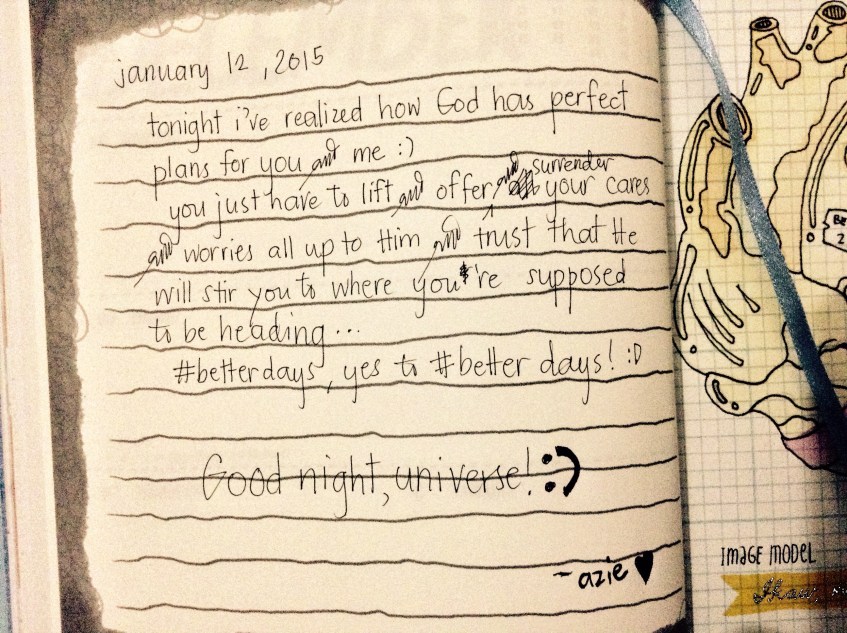 january 12, 2015
tonight i've realized how God has perfect
plans for you and me :)
you just have to lift and offer, and surrender your cares
and worries all up to Him and trust that He
will stir you to where you're supposed
to be heading...
#betterdays, yes to #better days! :D
Good night, universe! :)
- azie ♥
BE
2
IMAGE MODEL